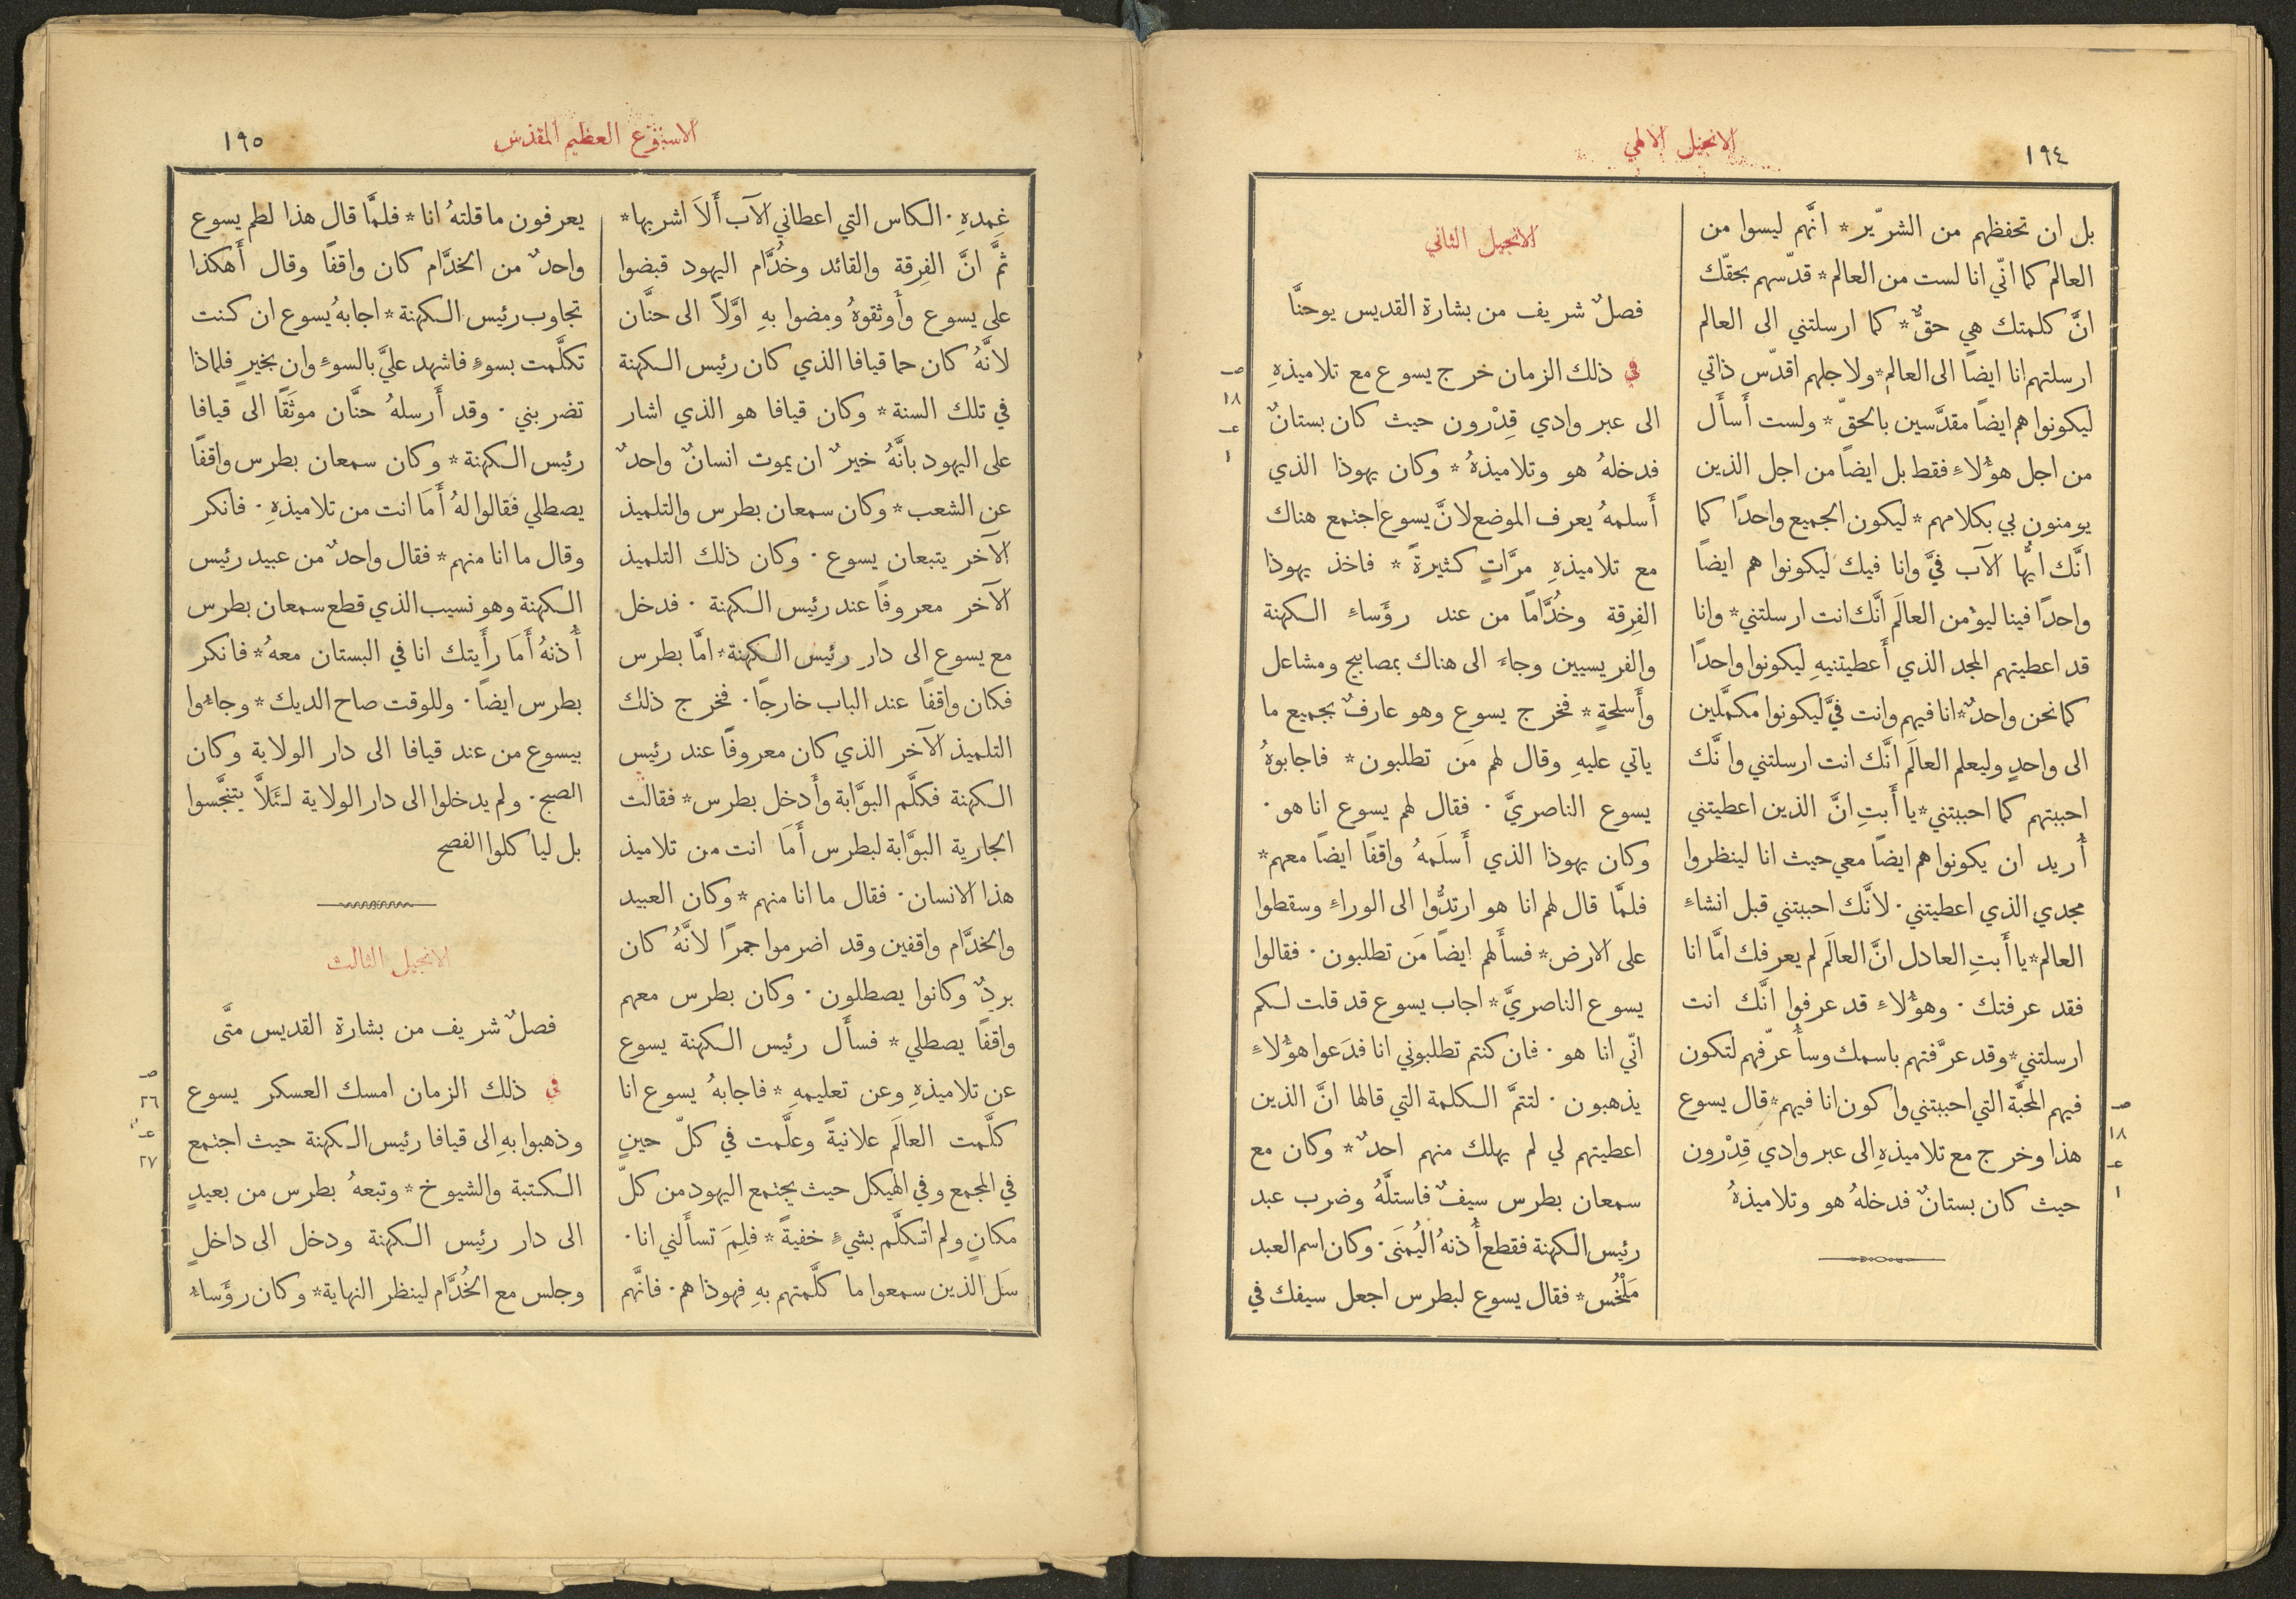 ١٩٤
الانجيل الالهي
بل ان تحفظهم من الشرّير * انَّهم ليسوا من
العالم كما انّي انا لست من العالم * قدّسهم بحقّك
انَّ كلمتك هي حقٌّ * كما ارسلتني الى العالم
ارسلتهم انا ايضاً الى العالم * ولاجلهم اقدّس ذاتي
ليكونوا هم ايضًا مقدَّسين بالحقّ * ولست أَسأَل
من اجل هؤُلاءِ فقط بل ايضاً من اجل الذين
يومنون بي بكلامهم * ليكون الجميع واحدًا كما
انَّك ايُّها الآب فيَّ وانا فيك ليكونوا هم ايضاً
واحدًا فينا ليؤمن العالَم أنَّك انت ارسلتني * وانا
قد اعطيتهم المجد الذي أَعطيتنيهِ ليكونوا واحدًا
كما نحن واحدٌ * انا فيهم وانت فيَّ ليكونوا مكمَّلين
الى واحدٍ وليعلم العالَم انَّك انت ارسلتني وانَّك
احببتهم كما احببتني * يا أَبتِ انَّ الذين اعطيتني
أُريد ان يكونوا هم ايضاً معي حيث انا لينظروا
مجدي الذي اعطيتني · لانَّك احببتني قبل انشاءِ
العالم * يا أَبتِ العادل انَّ العالَم لم يعرفك امَّا انا
فقد عرفتك · وهؤُلاءِ قد عرفوا انَّك انت
ارسلتني * وقد عرَّفتهم باسمك وسأُعرّفهم لتكون
فيهم المحبَّة التي احببتني واكون انا فيهم * قال يسوع
هذا وخرج مع تلاميذهِ الى عبر وادي قِدْرون
حيث كان بستانٌ فدخلهُ هو وتلاميذهُ
صـ
١٨
عـ
١
الانجيل الثاني
فصلٌ شريف من بشارة القديس يوحنَّا
في ذلك الزمان خرج يسوع مع تلاميذهِ
الى عبر وادي قِدْرون حيث كان بستانٌ
فدخلهُ هو وتلاميذهُ * وكان يهوذا الذي
أَسلمهُ يعرف الموضع لانَّ يسوع اجتمع هناك
مع تلاميذهِ مرَّاتٍ كثيرةً * فاخذ يهوذا
الفِرقة وخُدَّامًا من عند رؤَساءِ الكهنة
والفريسيين وجاءَ الى هناك بمصابيح ومشاعل
وأَسلحةٍ * فخرج يسوع وهو عارفٌ بجميع ما
ياتي عليهِ وقال لهم مَن تطلبون * فاجابوهُ
يسوع الناصريَّ · فقال لهم يسوع انا هو ·
وكان يهوذا الذي أَسلَمهُ واقفًا ايضاً معهم *
فلمَّا قال لهم انا هو ارتدُّوا الى الوراءِ وسقطوا
على الارض * فسأَلهم ايضاً مَن تطلبون · فقالوا
يسوع الناصريَّ * اجاب يسوع قد قلت لكم
انّي انا هو · فان كنتم تطلبوني انا فدَعوا هؤُلاءِ
يذهبون · لتتمَّ الكلمة التي قالها انَّ الذين
اعطيتهم لي لم يهلك منهم احدٌ * وكان مع
سمعان بطرس سيفٌ فاستلَّهُ وضرب عبد
رئيس الكهنة فقطع أُذنهُ اليُمنَى · وكان اسم العبد
مَلْخُس * فقال يسوع لبطرس اجعل سيفك في
صـ
١٨
عـ
١
الاسبوع العظيم المقدَّس
١٩٥
غِمدهِ · الكاس التي اعطاني الآب أَلاَ اشربها *
ثمَّ انَّ الفِرقة والقائد وخُدَّام اليهود قبضوا
على يسوع وأَوثقوهُ ومضوا بهِ اوَّلاً الى حنَّان
لانَّهُ كان حما قيافا الذي كان رئيس الكهنة
في تلك السنة * وكان قيافا هو الذي اشار
على اليهود بانَّهُ خيرٌ ان يموت انسانٌ واحدٌ
عن الشعب * وكان سمعان بطرس والتلميذ
الآخر يتبعان يسوع · وكان ذلك التلميذ
الآخر معروفًا عند رئيس الكهنة · فدخل
مع يسوع الى دار رئيس الكهنة * امَّا بطرس
فكان واقفًا عند الباب خارجًا · فخرج ذلك
التلميذ الآخر الذي كان معروفًا عند رئيس
الكهنة فكلَّم البوَّابة وأَدخل بطرس * فقالت
الجارية البوَّابة لبطرس أَمَا انت من تلاميذ
هذا الانسان · فقال ما انا منهم * وكان العبيد
والخدَّام واقفين وقد اضرموا جمرًا لانَّهُ كان
بردٌ وكانوا يصطلون · وكان بطرس معهم
واقفًا يصطلي * فسأَل رئيس الكهنة يسوع
عن تلاميذهِ وعن تعليمهِ * فاجابهُ يسوع انا
كلَّمت العالَم علانيةً وعلَّمت في كلّ حينٍ
في المجمع وفي الهيكل حيث يجتمع اليهود من كلّ
مكانٍ ولم اتكلَّم بشيءٍ خفيةً * فلِمَ تسأَلني انا ·
سَل الذين سمعوا ما كلَّمتهم بهِ فهوذا هم · فانَّهم
يعرفون ما قلتهُ انا * فلمَّا قال هذا لطم يسوع
واحدٌ من الخدَّام كان واقفًا وقال أَهكذا
تجاوب رئيس الكهنة * اجابهُ يسوع ان كنت
تكلَّمت بسوءٍ فاشهد عليَّ بالسوءِ وان بخيرٍ فلماذا
تضربني · وقد أَرسلهُ حنَّان موثَقًا الى قيافا
رئيس الكهنة * وكان سمعان بطرس واقفًا
يصطلي فقالوا لهُ أَمَا انت من تلاميذهِ · فانكر
وقال ما انا منهم * فقال واحدٌ من عبيد رئيس
الكهنة وهو نسيب الذي قطع سمعان بطرس
أُذنهُ أَمَا رأَيتك انا في البستان معهُ * فانكر
بطرس ايضاً · وللوقت صاح الديك * وجاءُوا
بيسوع من عند قيافا الى دار الولاية وكان
الصبح · ولم يدخلوا الى دار الولاية لئَلاَّ يتنجَّسوا
بل لياكلوا الفصح
الانجيل الثالث
فصلٌ شريف من بشارة القديس متَّى
في ذلك الزمان امسك العسكر يسوع
وذهبوا بهِ الى قيافا رئيس الكهنة حيث اجتمع
الكتبة والشيوخ * وتبعهُ بطرس من بعيدٍ
الى دار رئيس الكهنة ودخل الى داخلٍ
وجلس مع الخُدَّام لينظر النهاية * وكان رؤَساءُ
صـ
٢٦
عـ
٢٧